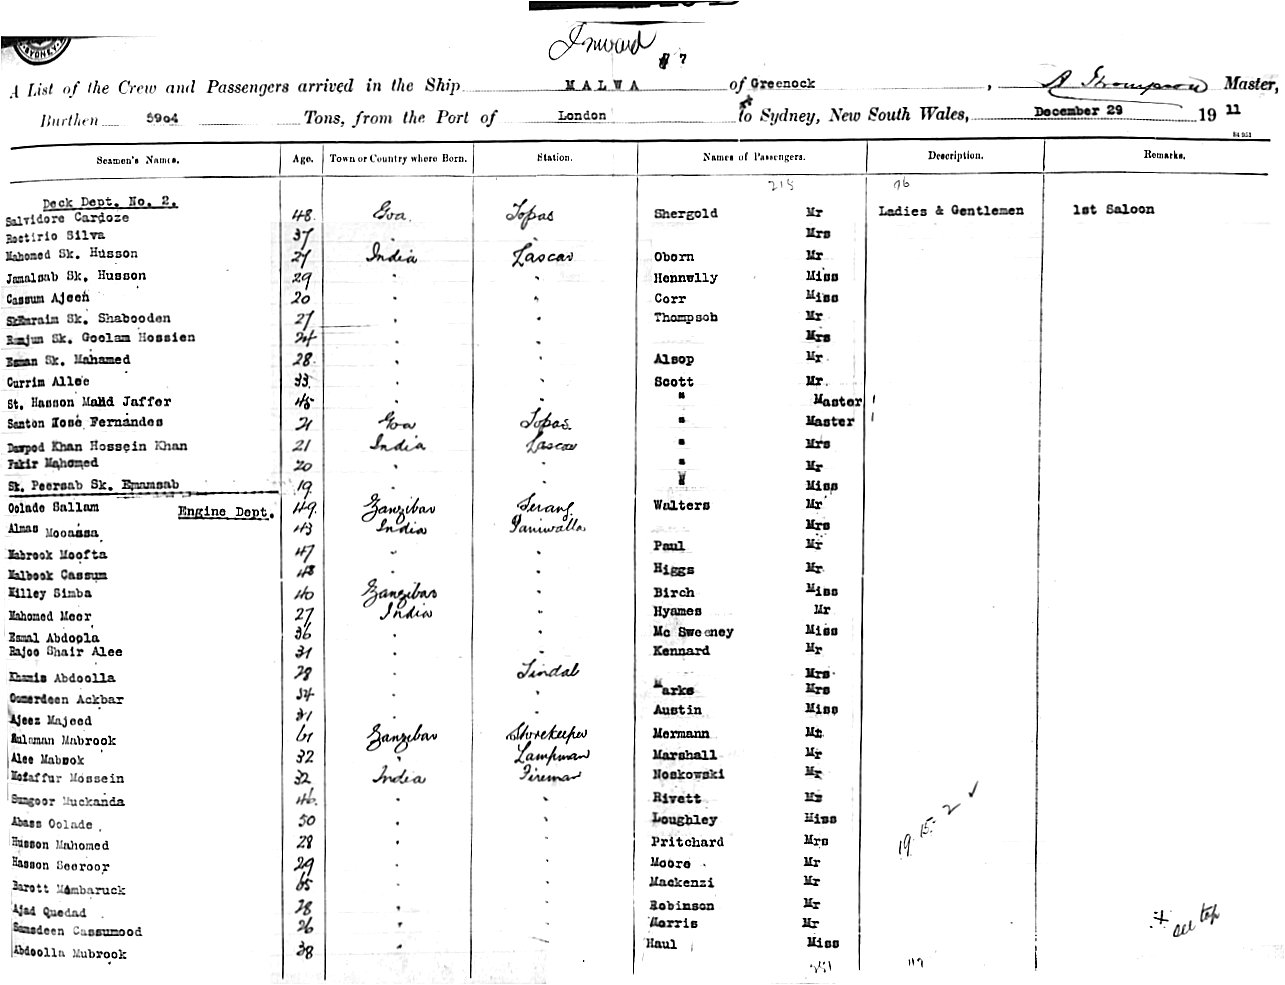 SYDNEY
Inward
7
A List of the Crew and Passengers arrived in the Ship MALWA of Greenock, A Thompson Master,
Burthen 5904 Tons, from the Port of London to Sydney, New South Wales, December 29 1911
Seamen's Names. Age. Town or Country where Born. Station. Names of Passengers. Description. Remarks.
218 76
Deck Dept. No. 2.
Salvidore Cardoze 48 Goa Topas Shergold Mr Ladies & Gentlemen 1st Saloon
Roctirio Silva 37 " " Mrs
Mahomed Sk. Husson 27 India Lascar Oborn Mr
Jamalsab Sk. Husson 29 " " Hennwlly Miss
Cassum Ajeen 20 " " Corr Miss
Sk. Shabooden 27 " " Thompson Mr
Ramjun Sk. Goolam Hossien 24 " " Mrs
Esman Sk. Mahamed 28 " " Alsop Mr
Currim Allee 33 " " Scott Mr
St. Hasson Mahd Jaffer 45 " " " Master
Santon Jose Fernandes 21 Goa Topas " Master
Dawood Khan Hossein Khan 21 India Lascar " Mrs
Fakir Mahomed 20 " " " Mr
Sk. Peersab Sk. Emamsab 19 " " " Miss
Engine Dept.
Oolade Sallam 49 Zanzibar Serang Walters Mr
Almas Mooassa 43 India Paniwalla Mrs
Mabrook Moofta 47 " " Paul Mr
Malbook Cassum 48 " " Higgs Mr
Milley Simba 40 Zanzibar " Birch Miss
Mahomed Meer 27 India " Hyames Mr
Esmal Abdoola 36 " " Mc Sweeney Miss
Rajoo Shair Alee 31 " " Kennard Mr
Khamis Abdoolla 28 " Tindal Mrs
Oomerdeen Ackbar 34 " " Marks Mrs
Ajeez Majeed 31 " " Austin Miss
Sulaman Mabrook 61 Zanzibar Storekeeper Mermann Mr
Alee Mabook 32 " Lampman Marshall Mr
Mozaffur Mossein 32 India Fireman Noskowski Mr
Sungoor Muckanda 46 " " Rivett Mr
Abass Oolade 50 " " Loughley Miss
Husson Mahomed 28 " " Pritchard Mrs
Hasson Seeroor 29 " " Moore Mr
Barott Mambaruck 65 " " Mackenzi Mr
Ajad Quedad 28 " " Robinson Mr
Samsdeen Cassumood 26 " " Morris Mr
Abdoolla Mubrook 38 " " Haul Miss
19. 15. 2 ✓
see top